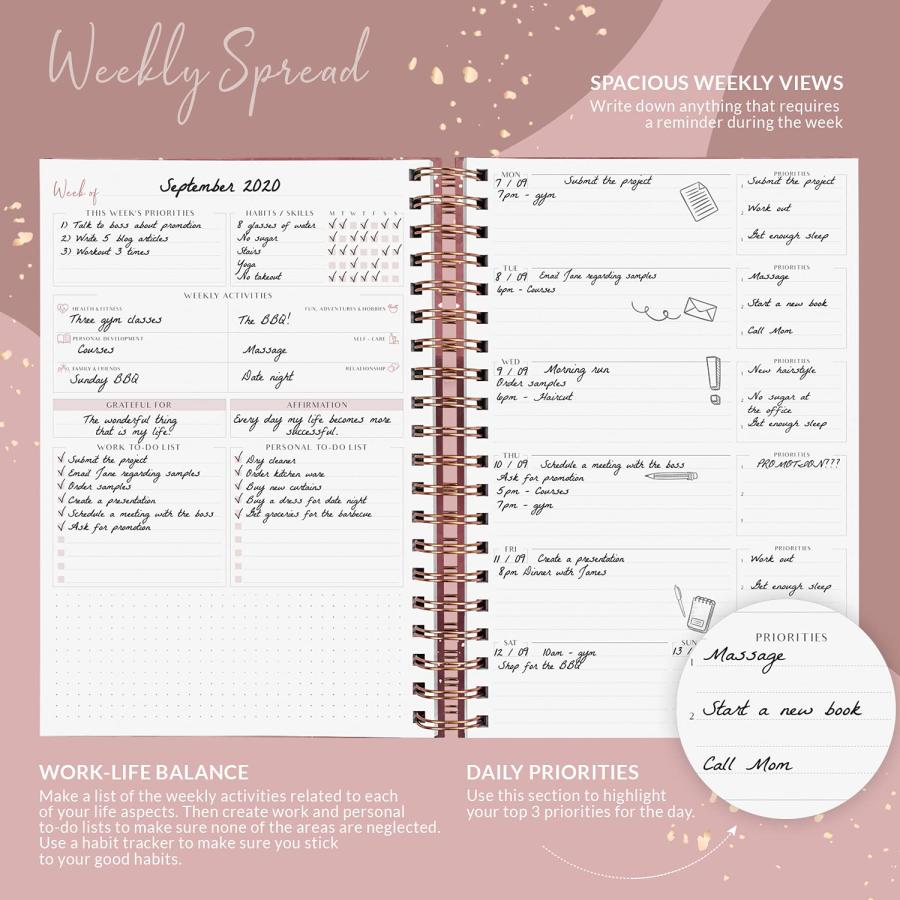 Weekly Spread
SPACIOUS WEEKLY VIEWS
Write down anything that requires
a reminder during the week
Week of
September 2020
THIS WEEK'S PRIORITIES
1) Talk to boss about promotion
2) Write 5 blog articles
3) Workout 3 times
HABITS / SKILLS M T W T F S S
8 glasses of water
No sugar
Stairs
Yoga
No takeout
WEEKLY ACTIVITIES
HEALTH & FITNESS
Three gym classes
FUN, ADVENTURES & HOBBIES
The BBQ!
PERSONAL DEVELOPMENT
Courses
SELF - CARE
Massage
FAMILY & FRIENDS
Sunday BBQ
RELATIONSHIP
Date night
GRATEFUL FOR
The wonderful thing
that is my life.
AFFIRMATION
Every day my life becomes more
successful.
WORK TO-DO LIST
Submit the project
Email Jane regarding samples
Order samples
Create a presentation
Schedule a meeting with the boss
Ask for promotion
PERSONAL TO-DO LIST
Dry cleaner
Order kitchen ware
Buy new curtains
Buy a dress for date night
Get groceries for the barbecue
MON
7 / 09 Submit the project
7pm - gym
PRIORITIES
1 Submit the project
2 Work out
3 Get enough sleep
TUE
8 / 09 Email Jane regarding samples
6pm - Courses
PRIORITIES
1 Massage
2 Start a new book
3 Call Mom
WED
9 / 09 Morning run
Order samples
6pm - Haircut
PRIORITIES
1 New hairstyle
2 No sugar at
the office
3 Get enough sleep
THU
10 / 09 Schedule a meeting with the boss
Ask for promotion
5pm - Courses
7pm - gym
PRIORITIES
1 PROMOTION???
2
3
FRI
11 / 09 Create a presentation
8pm Dinner with James
PRIORITIES
1 Work out
2 Get enough sleep
SAT
12 / 09 10am - gym
Shop for the BBQ
SUN
13 /
PRIORITIES
1 Massage
2 Start a new book
Call Mom
WORK-LIFE BALANCE
Make a list of the weekly activities related to each
of your life aspects. Then create work and personal
to-do lists to make sure none of the areas are neglected.
Use a habit tracker to make sure you stick
to your good habits.
DAILY PRIORITIES
Use this section to highlight
your top 3 priorities for the day.